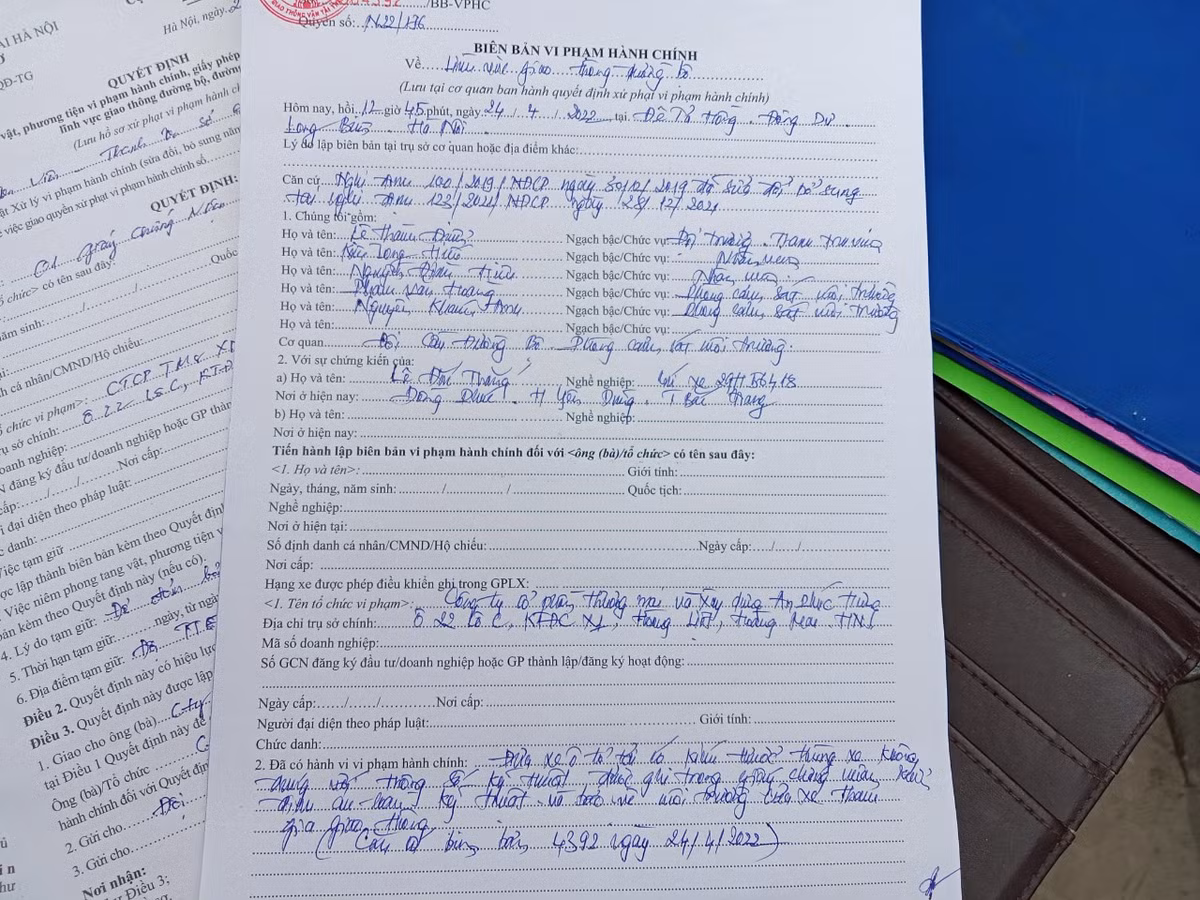 ẢI HÀ NỘI
Hà Nội, ngày
QĐ-TG
QUYẾT ĐỊNH
vật, phương tiện vi phạm hành chính, giấy phép
lĩnh vực giao thông đường bộ, đường
(Lưu hồ sơ xử phạt vi phạm hành ch
Thanh tra Sở
ật Xử lý vi phạm hành chính (sửa đổi, bổ sung năm
việc giao quyền xử phạt vi phạm hành chính số
QUYẾT ĐỊNH:
01 giấy chứng nhận
ổ chức> có tên sau đây:
Quốc
năm sinh:
nh cá nhân/CMND/Hộ chiếu:
ổ chức vi phạm>: CTCP TM& XD
ụ sở chính: Ô 22 Lô C, KTĐC
oanh nghiệp:
N đăng ký đầu tư/doanh nghiệp hoặc GP thành lậ
cấp: Nơi cấp:
i đại diện theo pháp luật:
c danh:
Việc tạm giữ
ợc lập thành biên bản kèm theo Quyết định
Việc niêm phong tang vật, phương tiện v
bản kèm theo Quyết định này (nếu có).
4. Lý do tạm giữ: Để đảm bảo
5. Thời hạn tạm giữ: ngày, từ ngày
6. Địa điểm tạm giữ:
Điều 2. Quyết định này có hiệu lực
Điều 3. Quyết định này được lập
1. Giao cho ông (bà) Cty
tại Điều 1 Quyết định này để
Ông (bà)/Tổ chức
hành chính đối với Quyết định
2. Gửi cho Đội
3. Gửi cho
Nơi nhận:
Điều 3;
/BB-VPHC
GIAO THÔNG VẬN TẢI
Quyển số: N22/176
BIÊN BẢN VI PHẠM HÀNH CHÍNH
Về Lĩnh vực giao thông đường bộ
(Lưu tại cơ quan ban hành quyết định xử phạt vi phạm hành chính)
Hôm nay, hồi 12 giờ 45 phút, ngày 24 / 4 / 2022 tại Đê Tả Hồng Đông Dư
Long Biên Hà Nội
Lý do lập biên bản tại trụ sở cơ quan hoặc địa điểm khác:
Căn cứ Nghị định 100/2019/NĐCP ngày 30/12/2019 đã sửa đổi bổ sung
tại nghị định 123/2021/NĐCP ngày 28/12/2021
1. Chúng tôi gồm:
Họ và tên: Lê Thanh Ngạch bậc/Chức vụ: Đội trưởng Thanh tra viên
Họ và tên: Long Ngạch bậc/Chức vụ: Nhân viên
Họ và tên: Nguyễn Đình Hiếu Ngạch bậc/Chức vụ: Nhân viên
Họ và tên: Phạm Văn Hoàng Ngạch bậc/Chức vụ: Phòng cảnh sát môi trường
Họ và tên: Nguyễn Khánh Ngạch bậc/Chức vụ: Phòng cảnh sát môi trường
Họ và tên: Ngạch bậc/Chức vụ:
Cơ quan Đội Cầu Đường Bộ Phòng cảnh sát môi trường
2. Với sự chứng kiến của:
a) Họ và tên: Lê Đức Thắng Nghề nghiệp: lái xe 29H 56418
Nơi ở hiện nay: H Yên Dũng T Bắc Giang
b) Họ và tên: Nghề nghiệp:
Nơi ở hiện nay:
Tiến hành lập biên bản vi phạm hành chính đối với <ông (bà)/tổ chức> có tên sau đây:
<1. Họ và tên>: Giới tính:
Ngày, tháng, năm sinh: / / Quốc tịch:
Nghề nghiệp:
Nơi ở hiện tại:
Số định danh cá nhân/CMND/Hộ chiếu: Ngày cấp: / /
Nơi cấp:
Hạng xe được phép điều khiển ghi trong GPLX:
<1. Tên tổ chức vi phạm>: Công ty cổ phần thương mại và xây dựng An Phúc Hưng
Địa chỉ trụ sở chính: Ô 22 lô C, KTĐC X1, Hoàng Liệt, Hoàng Mai HN
Mã số doanh nghiệp:
Số GCN đăng ký đầu tư/doanh nghiệp hoặc GP thành lập/đăng ký hoạt động:
Ngày cấp: / / Nơi cấp:
Người đại diện theo pháp luật: Giới tính:
Chức danh:
2. Đã có hành vi vi phạm hành chính: Đưa xe ô tô tải có kích thước thùng xe không
đúng với thông số kỹ thuật được ghi trong giấy chứng nhận kiểm
định an toàn kỹ thuật và bảo vệ môi trường của xe tham
gia giao thông
(Căn cứ biên bản 4392 ngày 24/4/2022)